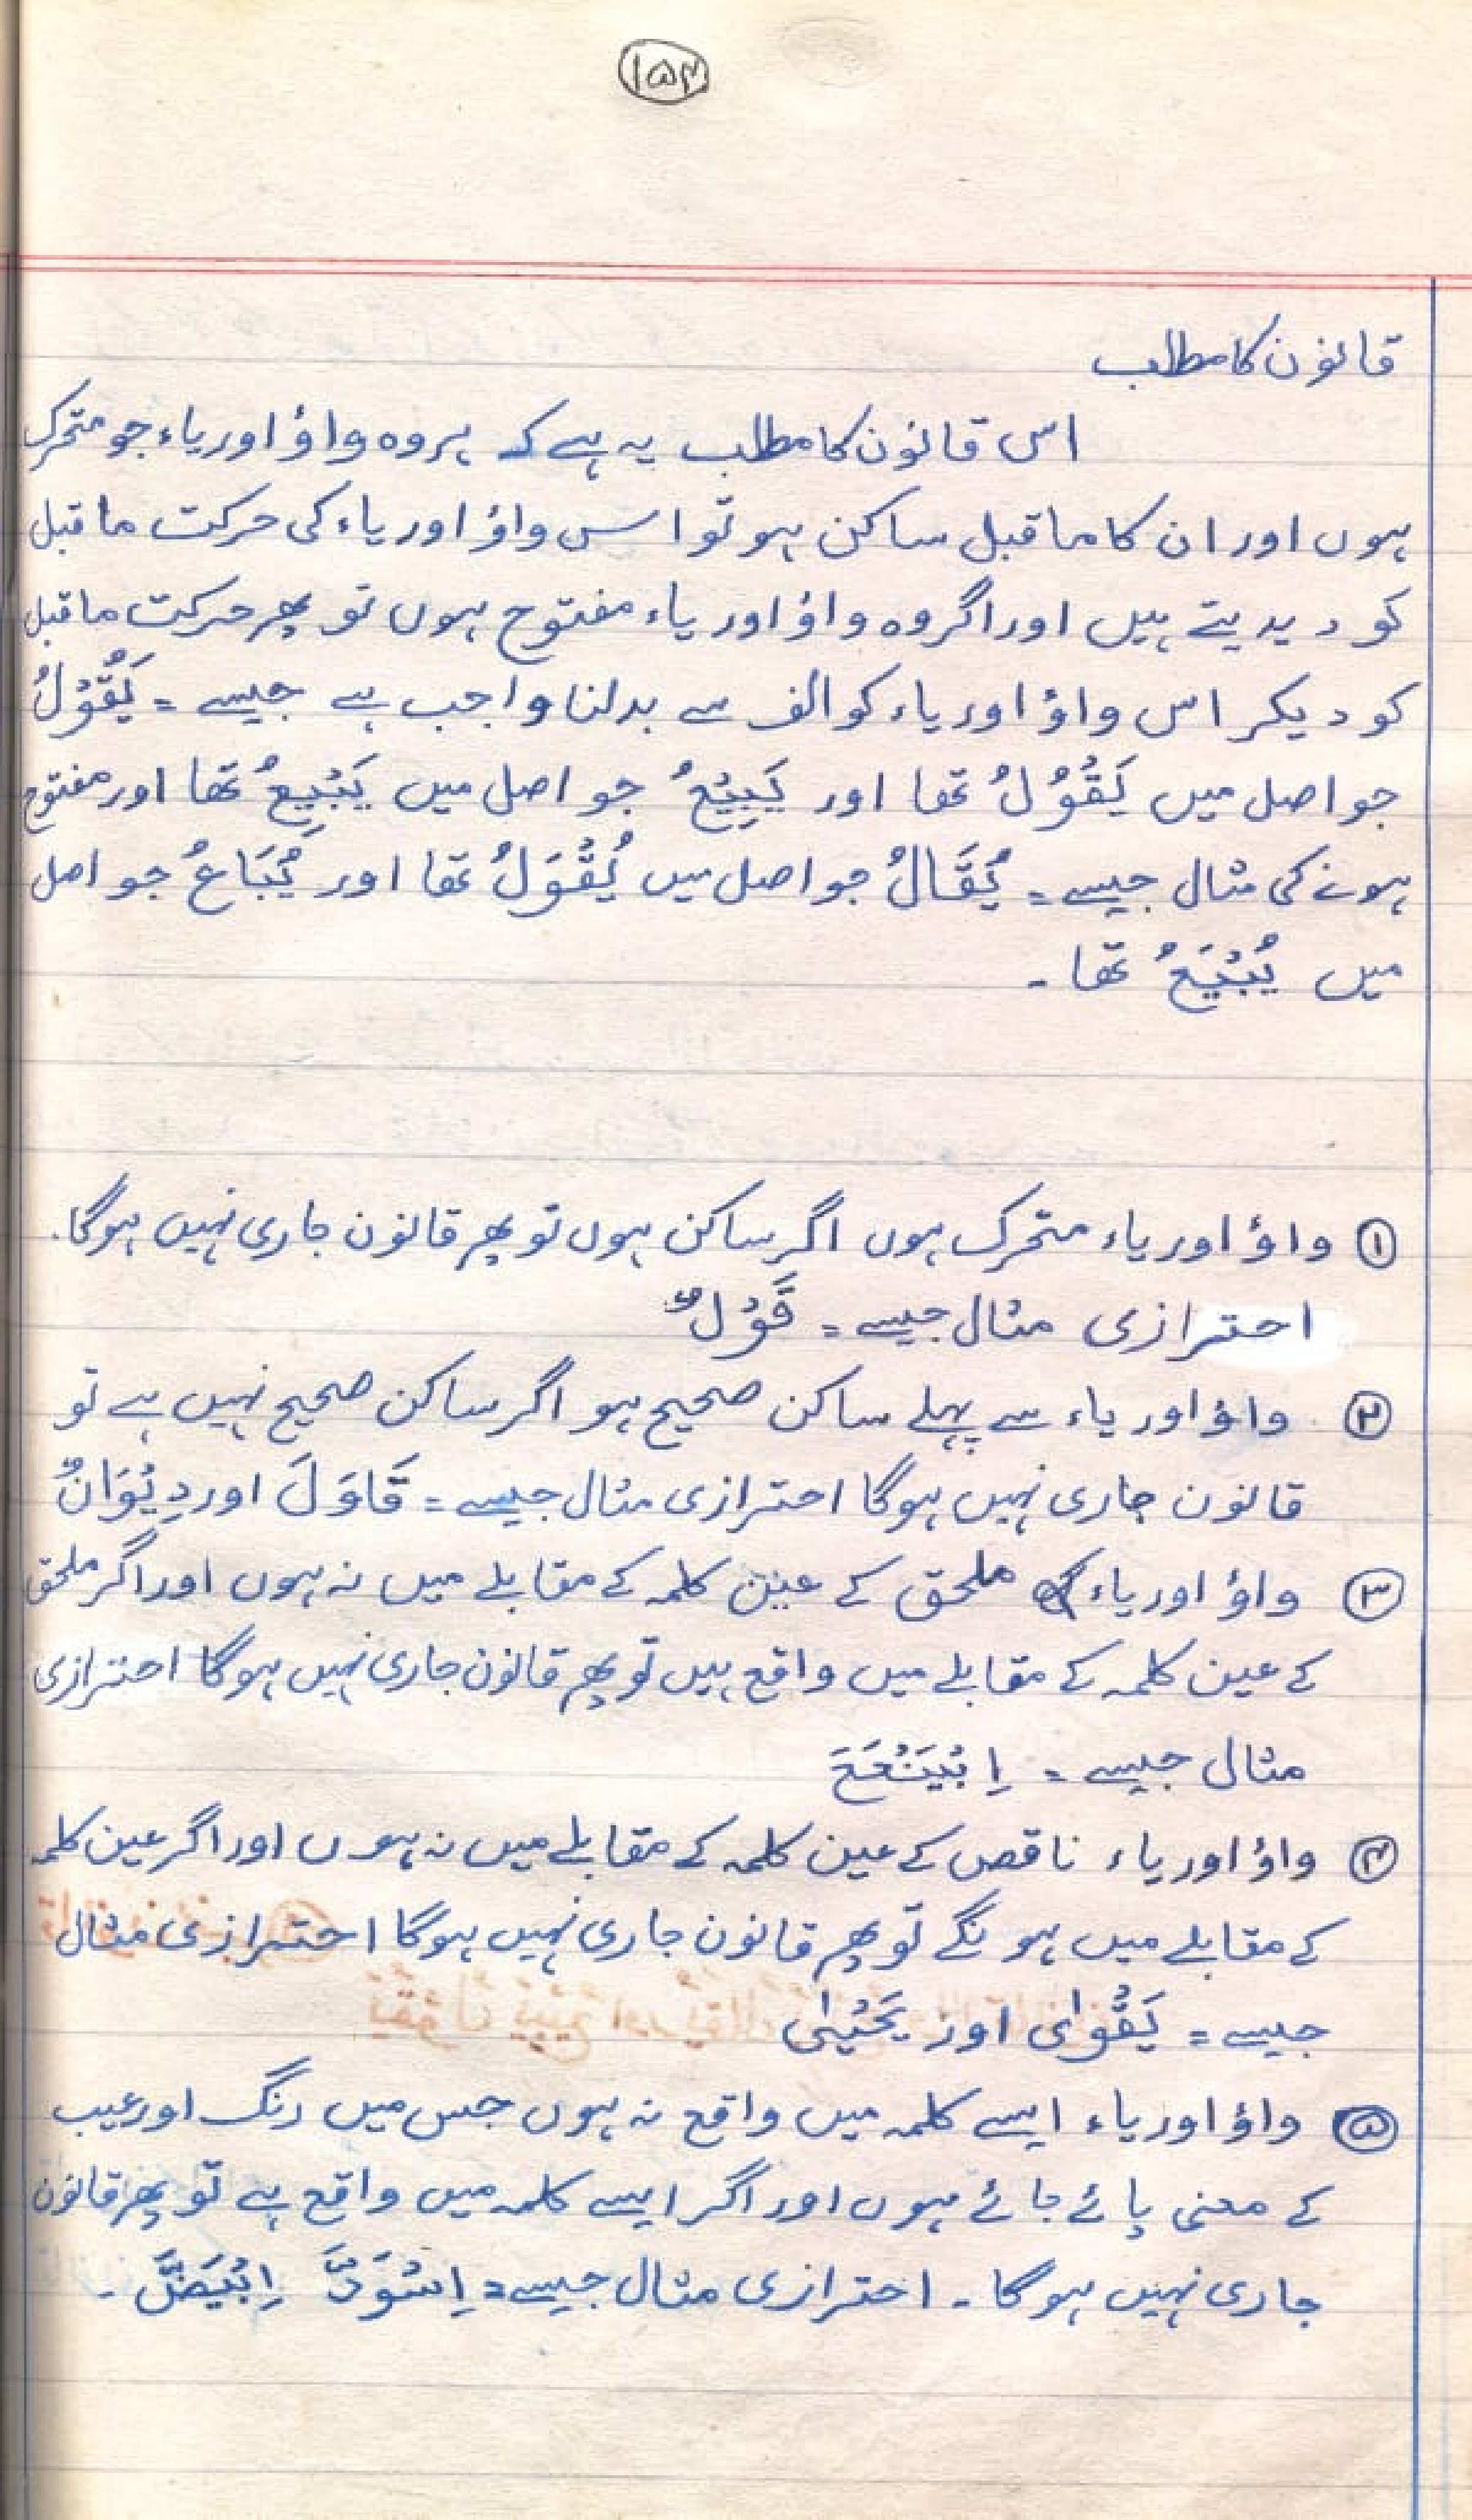 ۱۵۴
قانون کا مطلب
اس قانون کا مطلب یہ ہے کہ ہر وہ واؤ اور یاء جو متحرک
ہوں اور ان کا ماقبل ساکن ہو تو اس واؤ اور یاء کی حرکت ماقبل
کو دیدیتے ہیں اور اگر وہ واؤ اور یاء مفتوح ہوں تو پھر حرکت ماقبل
کو دیکر اس واؤ اور یاء کو الف سے بدلنا واجب ہے جیسے = یَقُوْلُ
جو اصل میں یَقْوُلُ تھا اور یَبِیْعُ جو اصل میں یَبْیِعُ تھا اور مفتوح
ہونے کی مثال جیسے = یُقَالُ جو اصل میں یُقْوَلُ تھا اور یُبَاعُ جو اصل
میں یُبْیَعُ تھا ۔
① واؤ اور یاء متحرک ہوں اگر ساکن ہوں تو پھر قانون جاری نہیں ہوگا۔
احترازی مثال جیسے = قَوْلٌ
② واؤ اور یاء سے پہلے ساکن صحیح ہو اگر ساکن صحیح نہیں ہے تو
قانون جاری نہیں ہوگا احترازی مثال جیسے = قَاوَلَ اور دِیْوَانٌ
③ واؤ اور یاء ملحق کے عین کلمہ کے مقابلے میں نہ ہوں اور اگر ملحق
کے عین کلمہ کے مقابلے میں واقع ہیں تو پھر قانون جاری نہیں ہوگا احترازی
مثال جیسے = اِبْیَنْعَعَ
④ واؤ اور یاء ناقص کے عین کلمہ کے مقابلے میں نہ ہوں اور اگر عین کلمہ
کے مقابلے میں ہونگے تو پھر قانون جاری نہیں ہوگا احترازی مثال
جیسے = یَقْوٰی اور یَحْیٰی
⑤ واؤ اور یاء ایسے کلمہ میں واقع نہ ہوں جس میں رنگ اور عیب
کے معنی پائے جائے ہوں اور اگر ایسے کلمہ میں واقع ہے تو پھر قانون
جاری نہیں ہوگا ۔ احترازی مثال جیسے = اِسْوَدَّ اِبْیَضَّ ۔